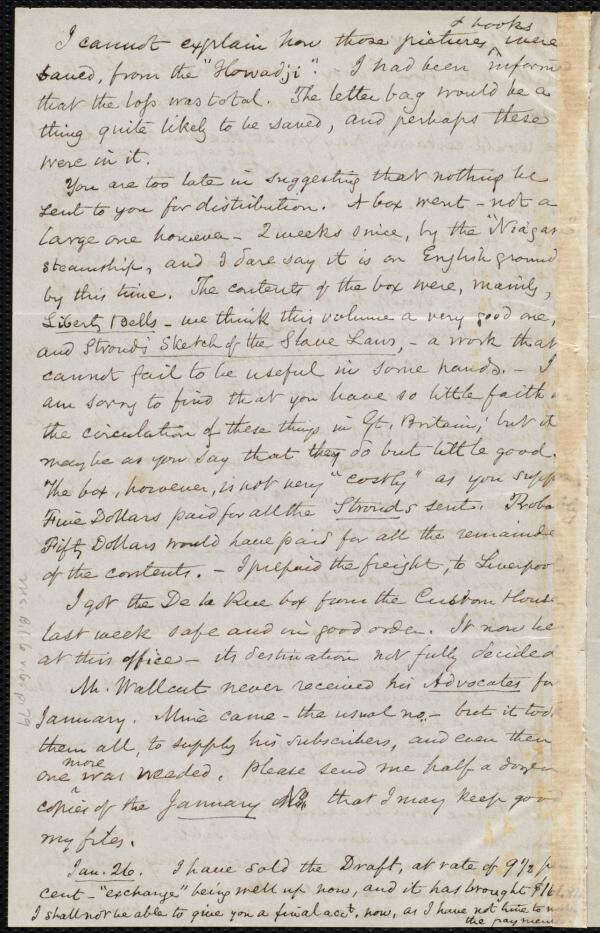 & books
I cannot explain how those pictures ^ were
saved, from the "Howadji". I had been inform
that the loss was total. The letter bag would be a
thing quite likely to be saved, and perhaps these
were in it.
You are too late in suggesting that nothing be
sent to you for distribution. A box went - not a
large one however - 2 weeks since, by the "Niagara"
steamship, and I dare say it is on English ground
by this time. The contents of the box were, mainly,
Liberty Bells - we think this volume a very good one,
and Stroud's Sketch of the Slave Laws, - a work that
cannot fail to be useful in some hands. - I
am sorry to find that you have so little faith
the circulation of these things in Gt. Britain; but it
may be as you say that they do but little good.
The box, however, is not very "costly" as you supp
Five Dollars paid for all the Strouds sent. Proba
Fifty Dollars would have paid for all the remainde
of the contents. - I prepaid the freight, to Liverpoo
I got the De la Rue box from the Custom House
last week safe and in good order. It now lies
at this office - its destination not fully decided
Mr. Wallcut never received his Advocates for
January. Mine came - the usual no. - but it took
them all, to supply his subscribers, and even then
more
one ^ was needed. Please send me half a dozen
copies of the January No. that I may keep good
my files.
Jan. 26. I have sold the Draft, at rate of 9 1/2 p
cent - "exchange" being well up now, and it has brought
I shall not be able to give you a final acct. now, as I have not time to
the paymen